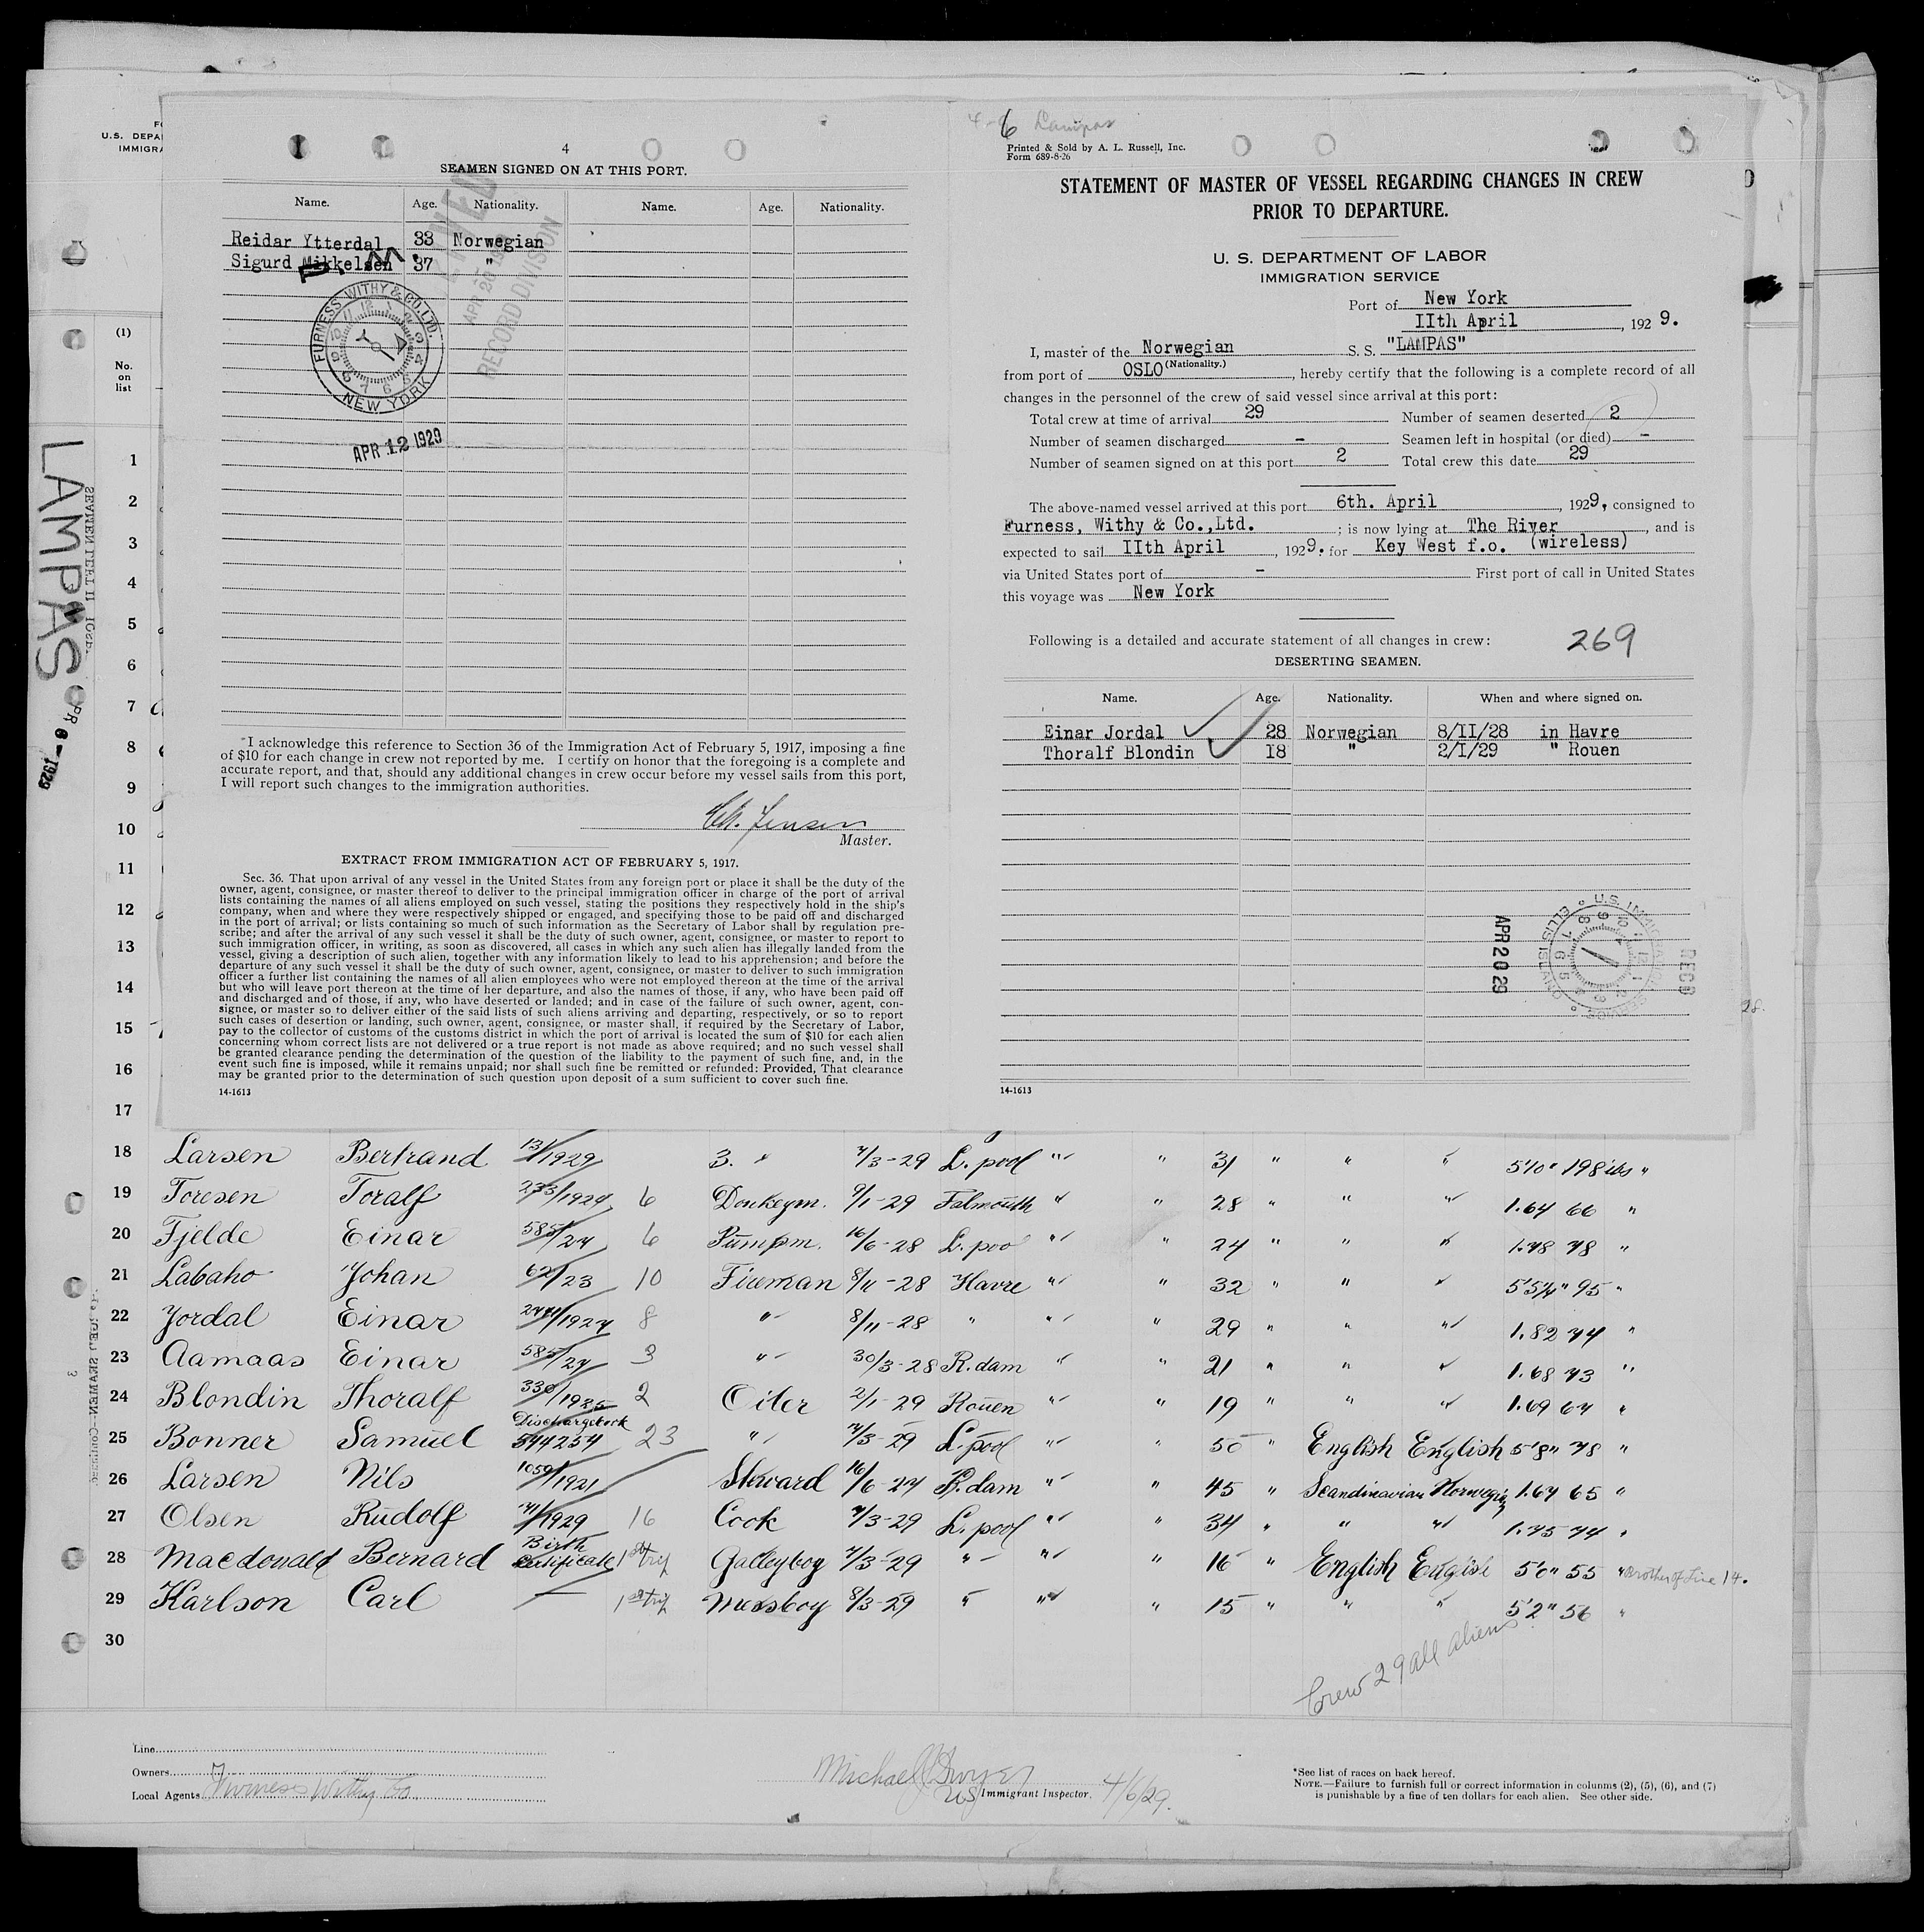 FO
U.S. DEPA
IMMIGRA
(1)
No.
on
list
LAMPAS
APR 6 - 1929
1
2
3
4
5
6
7
8
9
10
11
12
13
14
15
16
17
4
SEAMEN SIGNED ON AT THIS PORT.
Name. Age. Nationality. Name. Age. Nationality.
Reidar Ytterdal 33 Norwegian
Sigurd Mikkelsen 37 "
P. M.
FURNESS WITHY & CO. LTD.
NEW YORK
APR 12 1929
RECORD DIVISION
I acknowledge this reference to Section 36 of the Immigration Act of February 5, 1917, imposing a fine
of $10 for each change in crew not reported by me. I certify on honor that the foregoing is a complete and
accurate report, and that, should any additional changes in crew occur before my vessel sails from this port,
I will report such changes to the immigration authorities.
Ch. Jensen
Master.
EXTRACT FROM IMMIGRATION ACT OF FEBRUARY 5, 1917.
Sec. 36. That upon arrival of any vessel in the United States from any foreign port or place it shall be the duty of the
owner, agent, consignee, or master thereof to deliver to the principal immigration officer in charge of the port of arrival
lists containing the names of all aliens employed on such vessel, stating the positions they respectively hold in the ship's
company, when and where they were respectively shipped or engaged, and specifying those to be paid off and discharged
in the port of arrival; or lists containing so much of such information as the Secretary of Labor shall by regulation pre-
scribe; and after the arrival of any such vessel it shall be the duty of such owner, agent, consignee, or master to report to
such immigration officer, in writing, as soon as discovered, all cases in which any such alien has illegally landed from the
vessel, giving a description of such alien, together with any information likely to lead to his apprehension; and before the
departure of any such vessel it shall be the duty of such owner, agent, consignee, or master to deliver to such immigration
officer a further list containing the names of all alien employees who were not employed thereon at the time of the arrival
but who will leave port thereon at the time of her departure, and also the names of those, if any, who have been paid off
and discharged and of those, if any, who have deserted or landed; and in case of the failure of such owner, agent, con-
signee, or master so to deliver either of the said lists of such aliens arriving and departing, respectively, or so to report
such cases of desertion or landing, such owner, agent, consignee, or master shall, if required by the Secretary of Labor,
pay to the collector of customs of the customs district in which the port of arrival is located the sum of $10 for each alien
concerning whom correct lists are not delivered or a true report is not made as above required; and no such vessel shall
be granted clearance pending the determination of the question of the liability to the payment of such fine, and, in the
event such fine is imposed, while it remains unpaid; nor shall such fine be remitted or refunded: Provided, That clearance
may be granted prior to the determination of such question upon deposit of a sum sufficient to cover such fine.
14-1613
4-6 Lampas
Printed & Sold by A. L. Russell, Inc.
Form 689-8-26
STATEMENT OF MASTER OF VESSEL REGARDING CHANGES IN CREW
PRIOR TO DEPARTURE.
U. S. DEPARTMENT OF LABOR
IMMIGRATION SERVICE
Port of New York
IIth April, 1929.
I, master of the Norwegian S. S. "LAMPAS"
(Nationality.)
from port of OSLO, hereby certify that the following is a complete record of all
changes in the personnel of the crew of said vessel since arrival at this port:
Total crew at time of arrival 29 Number of seamen deserted 2
Number of seamen discharged - Seamen left in hospital (or died) -
Number of seamen signed on at this port 2 Total crew this date 29
The above-named vessel arrived at this port 6th. April, 1929, consigned to
Furness, Withy & Co.,Ltd.; is now lying at The River, and is
expected to sail IIth April, 1929. for Key West f.o. (wireless)
via United States port of - First port of call in United States
this voyage was New York
Following is a detailed and accurate statement of all changes in crew: 269
DESERTING SEAMEN.
Name. Age. Nationality. When and where signed on.
Einar Jordal 28 Norwegian 8/II/28 in Havre
Thoralf Blondin I8 " 2/I/29 " Rouen
APR 20 29
U.S. IMMIGRATION SERVICE ELLIS ISLAND
RECD
14-1613
28.
18 Larsen Bertrand 131/1929 3. " 7/3-29 L.pool " " 31 " " " 5'10" 198 lbs "
19 Toresen Toralf 273/1924 6 Donkeym. 9/1-29 Falmouth " " 28 " " " 1.64 66 "
20 Fjelde Einar 585/24 6 Pumpm. 16/6-28 L.poo " " 24 " " " 1.78 78 "
21 Labaho Johan 62/23 10 Fireman 8/11-28 Havre " " 32 " " " 5'5¼" 95 "
22 Jordal Einar 2441/1924 8 " 8/11-28 " " " 29 " " " 1.82 74 "
23 Aamaas Einar 585/24 3 " 30/3-28 R.dam " " 21 " " " 1.68 73 "
24 Blondin Thoralf 330/1925 2 Oiler 2/1-29 Rouen " " 19 " " " 1.69 64 "
25 Bonner Samuel Dischargebook 544254 23 " 7/3-29 L.pool " " 50 " English English 5'8" 78 "
26 Larsen Nils 1059/1921 Steward 16/6-24 R.dam " " 45 " Scandinavian Norwegia 1.64 65 "
27 Olsen Rudolf 41/1929 16 Cook 7/3-29 L.pool " " 34 " " " 1.75 74 "
28 Macdonald Bernard Birth Certificate 1st trip Galleyboy 7/3-29 " " " 16 " English English 5'0" 55 " Brother of Line 14.
29 Karlson Carl — 1st trip Messboy 8/3-29 " " " 15 " " " 5'2" 56 "
30
Crew 29 all aliens
Line
Owners
Local Agents Furness Withy Co
Michael J Dwyer
US Immigrant Inspector. 4/6/29.
*See list of races on back hereof.
NOTE.—Failure to furnish full or correct information in columns (2), (5), (6), and (7)
is punishable by a fine of ten dollars for each alien. See other side.